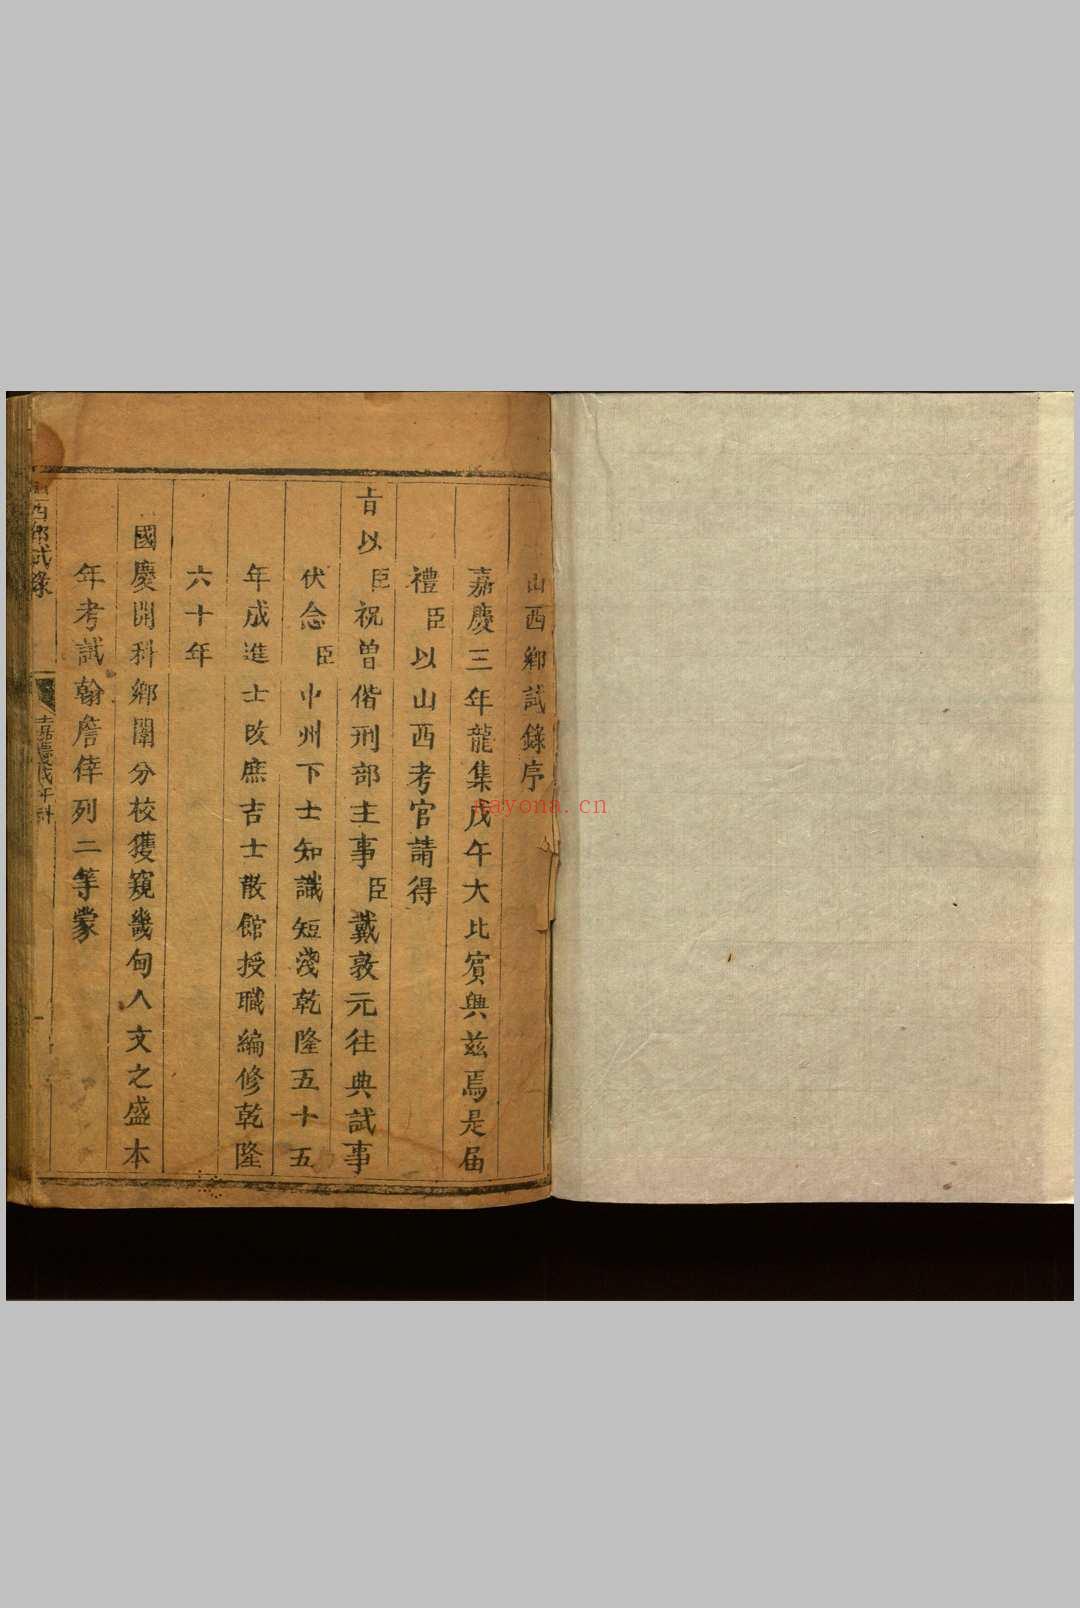 山西鄉試錄序
嘉慶三年龍集戊午大比賓興兹焉是届
禮臣以山西考官請得
旨以臣祝曾偕刑部主事臣戴敦元往典試事
伏念臣中州下士知識短淺乾隆五十五
年成進士改庶吉士散館授職編修乾隆
六十年
國慶開科鄉闈分校獲窺畿甸人文之盛本
年考試翰詹倖列二等蒙
山西鄉試錄
嘉慶戊午科
一
nayona.cn